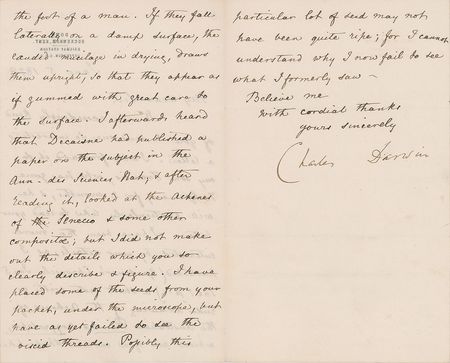 the foot of a man. If they fall
laterally on a damp surface, the
caudad mucilage in drying, draws
them upright, so that they appear as
if gummed with great care to
the surface. I afterwards heard
that Decaisne had published a
paper on the subject in the
Ann. des Sciences Nat; & after
reading it, looked at the achenes
of the Senecio & some other
compositæ; but I did not make
out the details which you so
clearly describe & figure. I have
placed some of the seeds from your
packet, under the microscope, but
have as yet failed to see the
viscid threads. Possibly this
particular lot of seed may not
have been quite ripe; for I cannot
understand why I now fail to see
what I formerly saw —
Believe me
with cordial thanks
yours sincerely
Charles Darwin